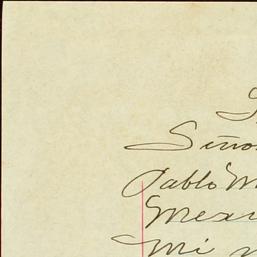 Seño
Pablo M
Mexi
Mi